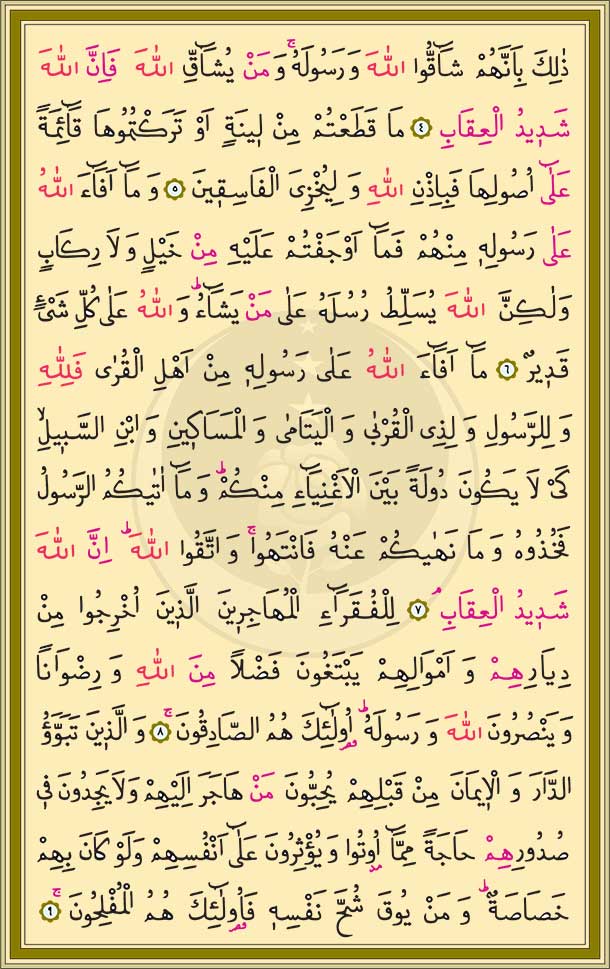 ذٰلِكَ بِاَنَّهُمْ شَٓاقُّوا اللّٰهَ وَ رَسُولَهُۚ وَ مَنْ يُشَٓاقِّ اللّٰهَ فَاِنَّ اللّٰهَ
شَد۪يدُ الْعِقَابِ ﴿٤﴾ مَا قَطَعْتُمْ مِنْ ل۪ينَةٍ اَوْ تَرَكْتُمُوهَا قَٓائِمَةً
عَلٰٓى اُصُولِهَا فَبِاِذْنِ اللّٰهِ وَ لِيُخْزِىَ الْفَاسِق۪ينَ ﴿٥﴾ وَ مَٓا اَفَٓاءَ اللّٰهُ
عَلٰى رَسُولِه۪ مِنْهُمْ فَمَٓا اَوْجَفْتُمْ عَلَيْهِ مِنْ خَيْلٍ وَ لَا رِكَابٍ
وَلٰكِنَّ اللّٰهَ يُسَلِّطُ رُسُلَهُ عَلٰى مَنْ يَشَٓاءُۜ وَ اللّٰهُ عَلٰى كُلِّ شَىْءٍ
قَد۪يرٌ ﴿٦﴾ مَٓا اَفَٓاءَ اللّٰهُ عَلٰى رَسُولِه۪ مِنْ اَهْلِ الْقُرٰى فَلِلّٰهِ
وَ لِلرَّسُولِ وَ لِذِى الْقُرْبٰى وَ الْيَتَامٰى وَ الْمَسَاك۪ينِ وَ ابْنِ السَّب۪يلِۙ
كَىْ لَا يَكُونَ دُولَةً بَيْنَ الْاَغْنِيَٓاءِ مِنْكُمْۜ وَ مَٓا اٰتٰيكُمُ الرَّسُولُ
فَخُذُوهُ وَ مَا نَهٰيكُمْ عَنْهُ فَانْتَهُواۚ وَ اتَّقُوا اللّٰهَۜ اِنَّ اللّٰهَ
شَد۪يدُ الْعِقَابِۢ ﴿٧﴾ لِلْفُقَرَٓاءِ الْمُهَاجِر۪ينَ الَّذ۪ينَ اُخْرِجُوا مِنْ
دِيَارِهِمْ وَ اَمْوَالِهِمْ يَبْتَغُونَ فَضْلًا مِنَ اللّٰهِ وَ رِضْوَانًا
وَ يَنْصُرُونَ اللّٰهَ وَ رَسُولَهُۜ اُو۬لٰٓئِكَ هُمُ الصَّادِقُونَۚ ﴿٨﴾ وَ الَّذ۪ينَ تَبَوَّؤُ
الدَّارَ وَ الْا۪يمَانَ مِنْ قَبْلِهِمْ يُحِبُّونَ مَنْ هَاجَرَ اِلَيْهِمْ وَلَا يَجِدُونَ ف۪ى
صُدُورِهِمْ حَاجَةً مِمَّٓا اُو۫تُوا وَ يُؤْثِرُونَ عَلٰٓى اَنْفُسِهِمْ وَلَوْ كَانَ بِهِمْ
خَصَاصَةٌۜ وَ مَنْ يُوقَ شُحَّ نَفْسِه۪ فَاُو۬لٰٓئِكَ هُمُ الْمُفْلِحُونَۚ ﴿٩﴾